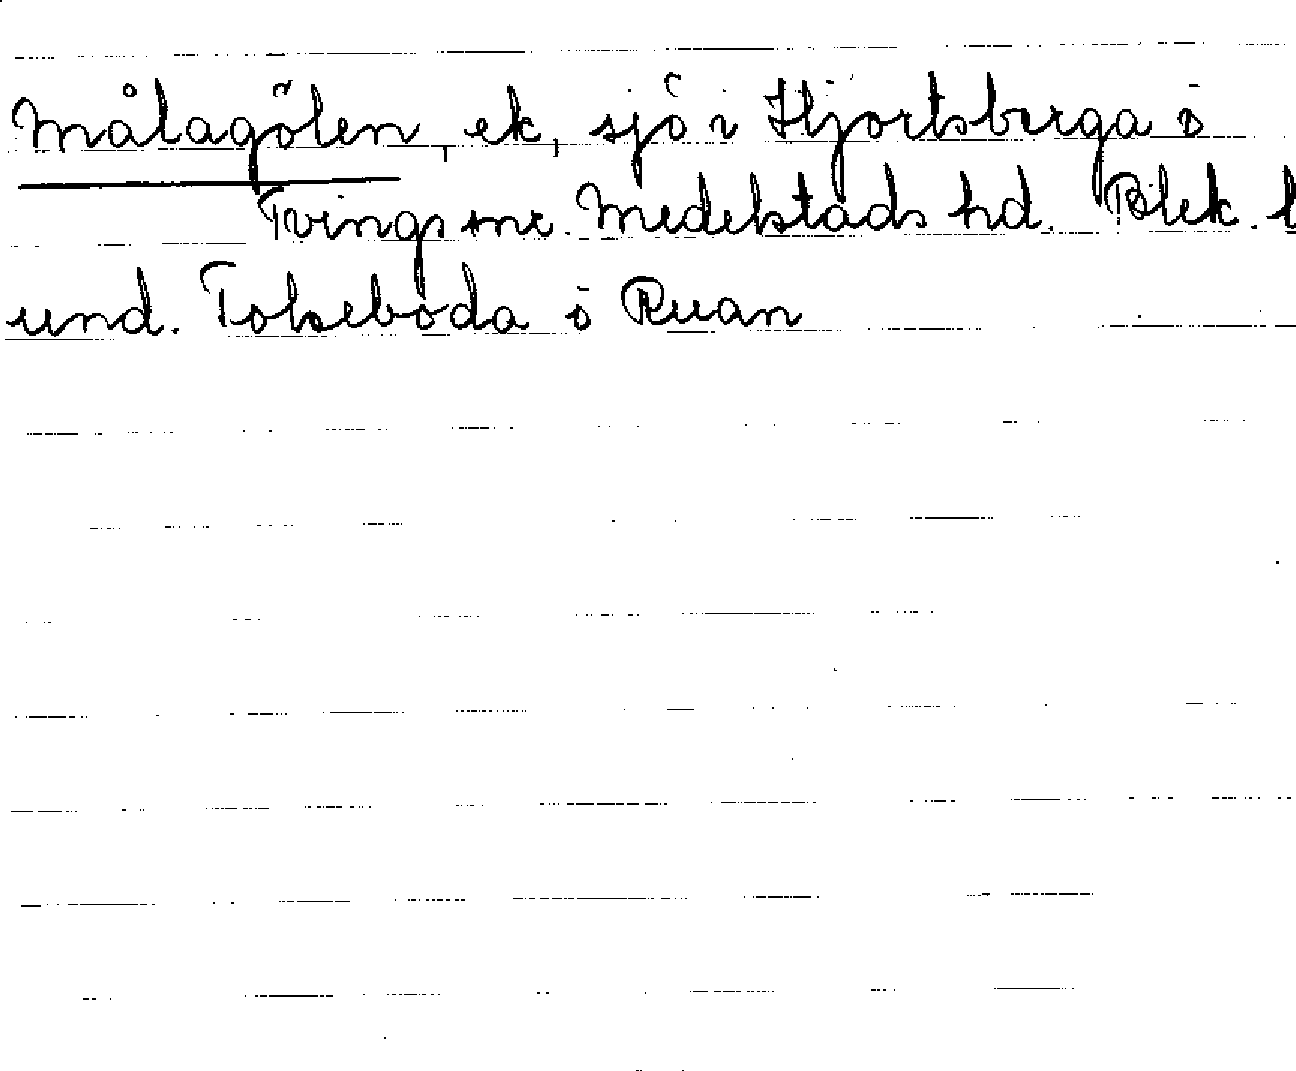 Målagölen, ek, sjö i Hjortsberga o
Tvings snr. Medelstads hd. Blek. l
und. Tokseboda o Ruan